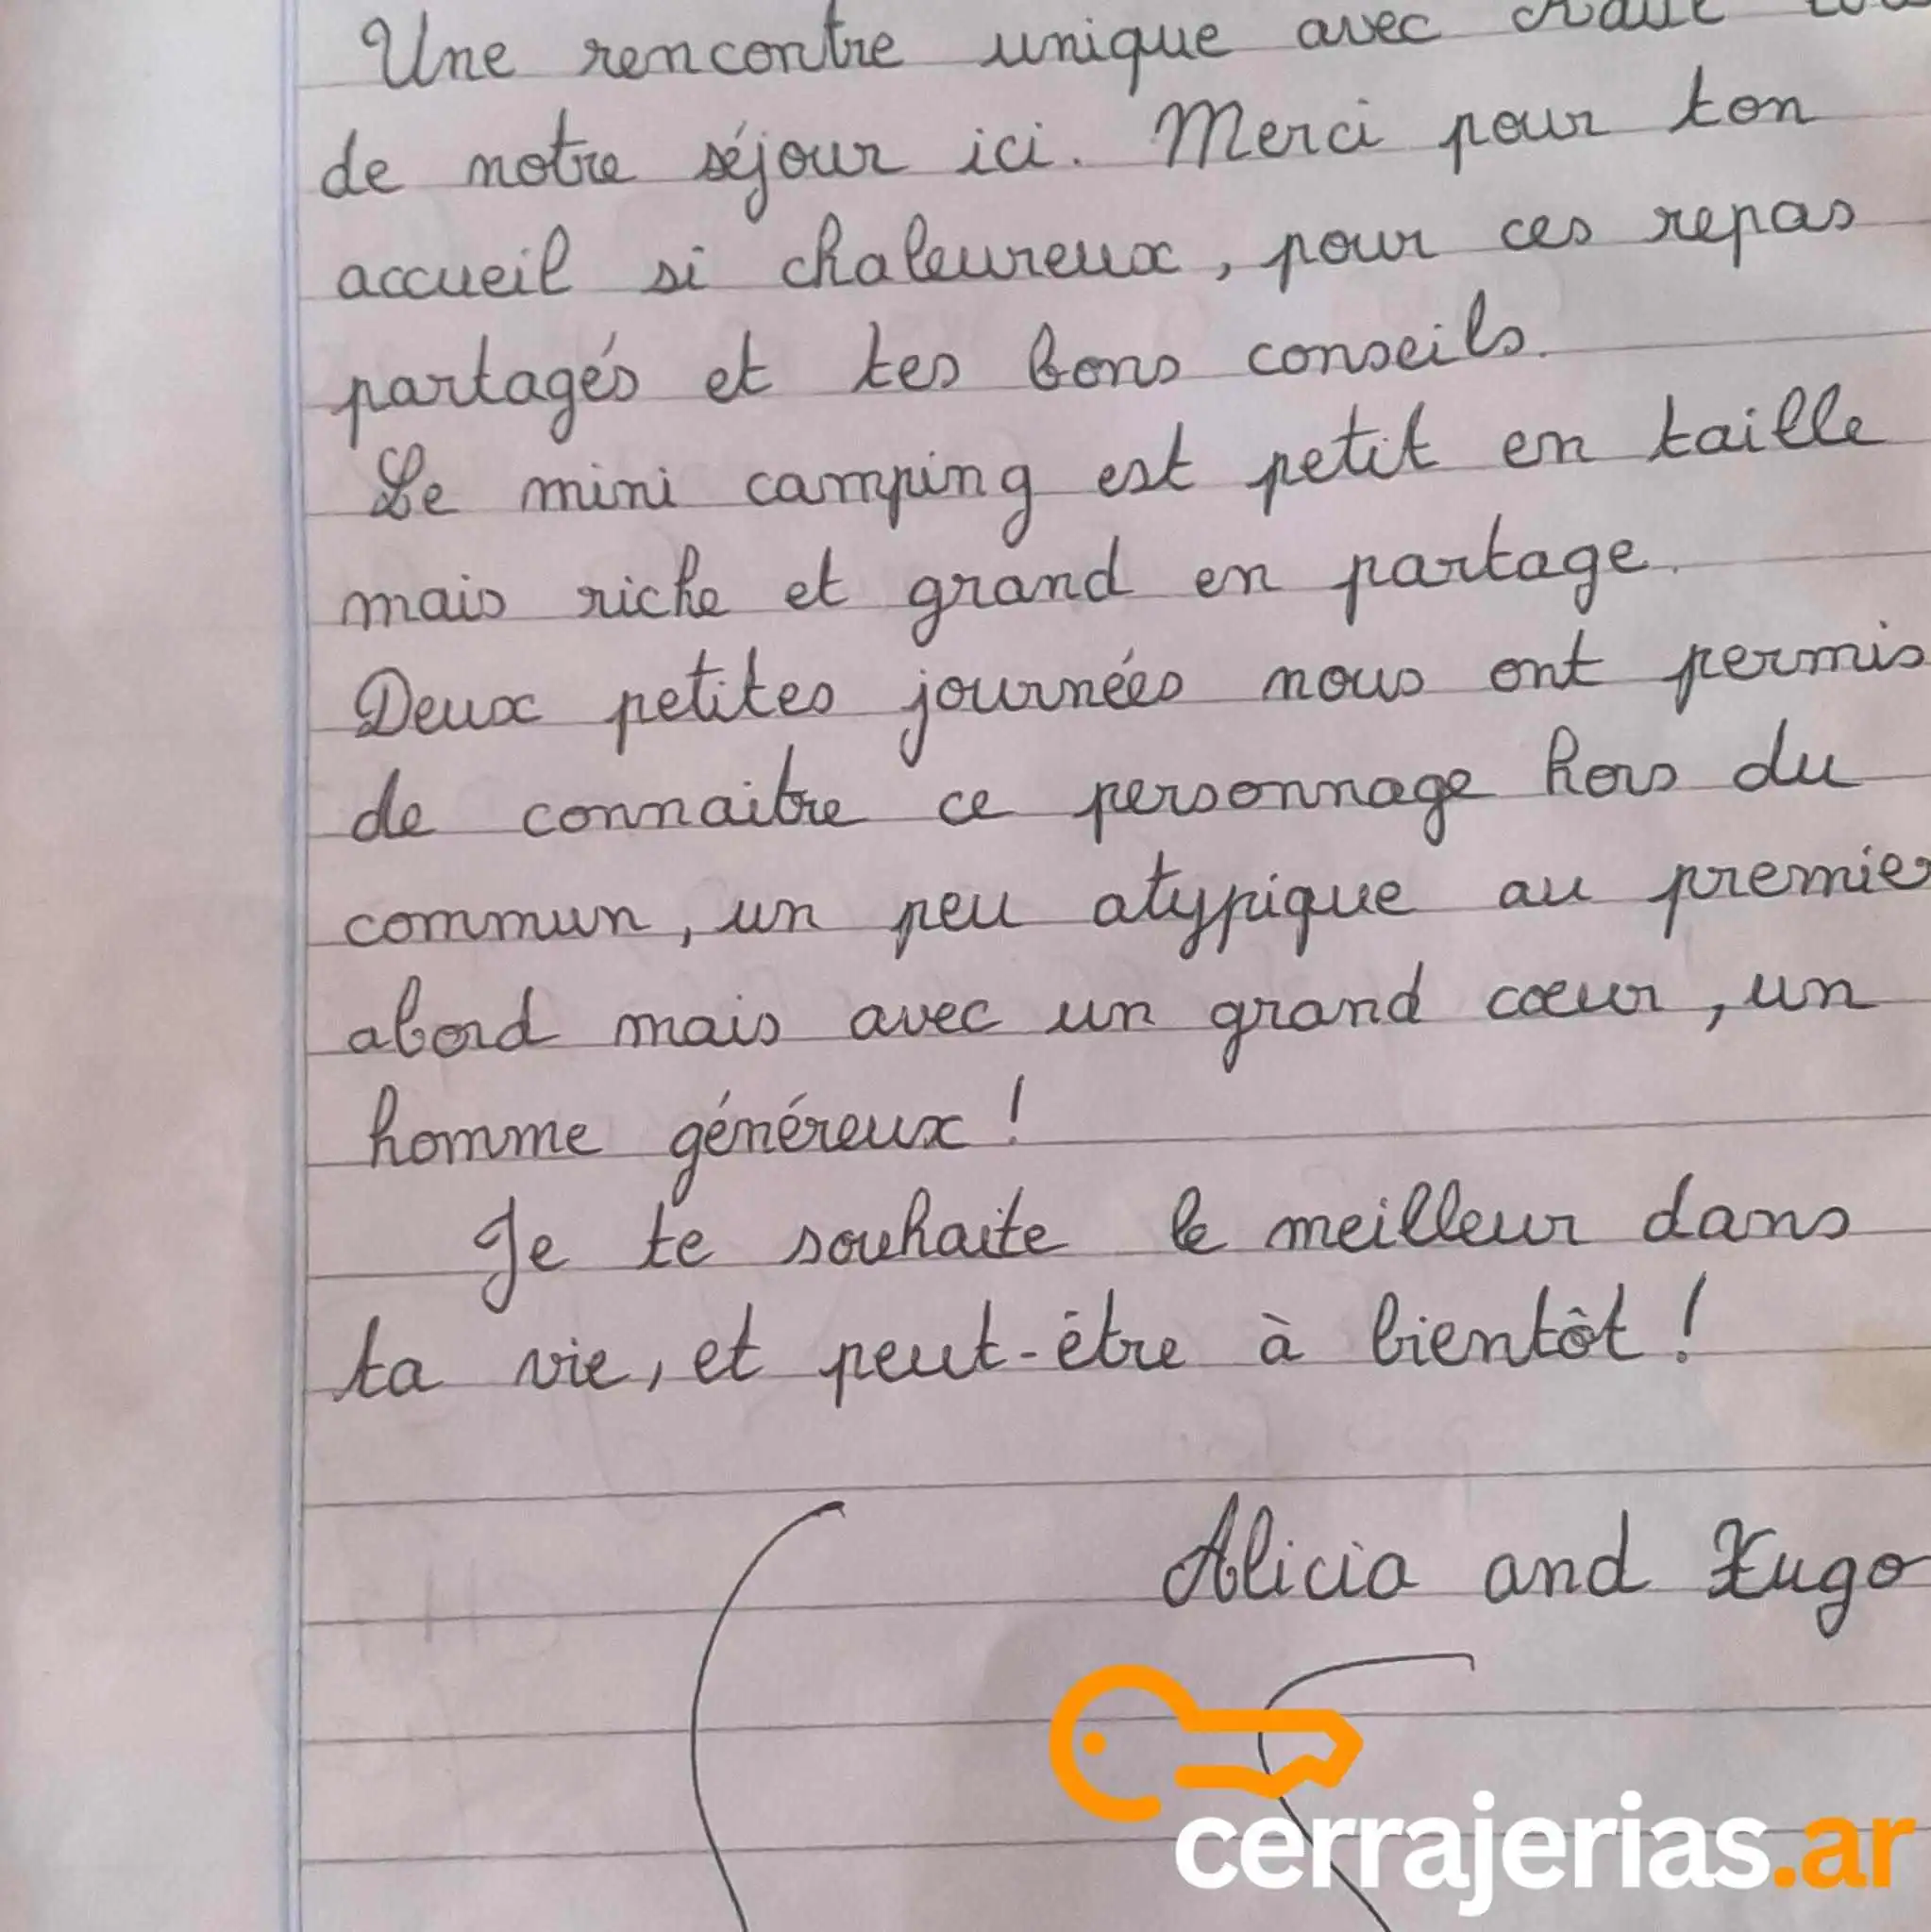 Une rencontre unique avec
de notre séjour ici. Merci pour ton
accueil si chaleureux, pour ces repas
partagés et tes bons conseils.
Le mini camping est petit en taille
mais riche et grand en partage.
Deux petites journées nous ont permis
de connaitre ce personnage hors du
commun, un peu atypique au premier
abord mais avec un grand cœur, un
homme généreux !
Je te souhaite le meilleur dans
ta vie, et peut-être à bientôt !
Alicia and Hugo
cerrajerias.ar